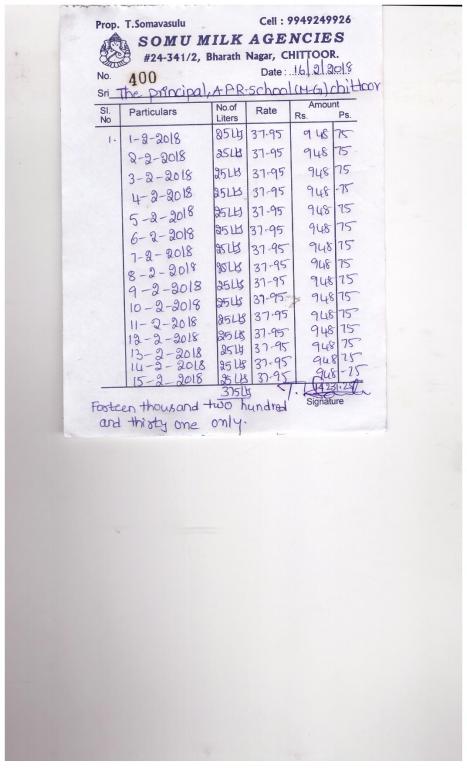 Prop. T.Somavasulu Cell : 9949249926
SOMU MILK AGENCIES
#24-341/2, Bharath Nagar, CHITTOOR.
No. 400 Date : 16/2/2018
Sri The principal, A P R-School (M-G) chittoor
Sl. No Particulars No.of Liters Rate Amount Rs. Ps.
1. 1-2-2018 25Lts 37-95 948 75
2-2-2018 25Lts 37-95 948 75
3-2-2018 25Lts 37-95 948 75
4-2-2018 25Lts 37-95 948 75
5-2-2018 25Lts 37-95 948 75
6-2-2018 25Lts 37-95 948 75
7-2-2018 25Lts 37-95 948 75
8-2-2018 25Lts 37-95 948 75
9-2-2018 25Lts 37-95 948 75
10-2-2018 25Lts 37-95 948 75
11-2-2018 25Lts 37-95 948 75
12-2-2018 25Lts 37-95 948 75
13-2-2018 25Lts 37-95 948 75
14-2-2018 25Lts 37-95 948 75
15-2-2018 25Lts 37-95 948-75
375Lts
Signature
Fosteen thousand two hundred
and thirty one only.